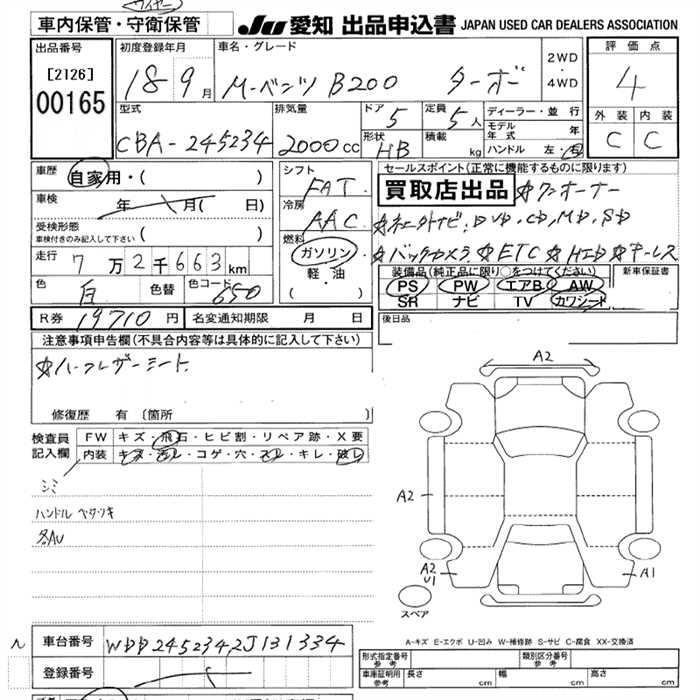 車内保管・守衛保管
JU 愛知 出品申込書 JAPAN USED CAR DEALERS ASSOCIATION
出品番号
[2126]
00165
初度登録年月
18 9月
車名・グレード
M-ベンツ B200 ターボ
2WD
・
4WD
評価点
4
外装 内装
C C
型式
CBA-245234
排気量
2000cc
ドア 5
定員 5人
形状 HB
積載 kg
ディーラー・並行
モデル年式 年
ハンドル 左・右
車歴
自家用・( )
車検
年 月( 日)
受検形態
車検付きのみ記入して下さい
( )
走行
7万2千663km
色
白
色替
色コード
650
シフト
FAT
冷房
AAC
燃料
ガソリン
・
軽・油
( )
セールスポイント(正常に機能するものに限ります)
買取店出品 ☆ワンオーナー
☆バックカメラ ☆ETC ☆HID ☆キーレス
装備品(純正品に限り○をつけてください)
PS PW エアB AW
SR ナビ TV カワシート
新車保証書
後日品
R券 19710円 名変通知期限 月 日
注意事項申告欄(不具合内容等は具体的に記入して下さい)
☆ハーフレザーシート
修復歴 有〔箇所 〕
検査員
記入欄
FW キズ・飛石・ヒビ割・リペア跡・X要
内装 キズ・汚レ・コゲ・穴・スレ・キレ・破レ
シミ
ハンドル ベタツキ
各AU
A2
A2
A2
U1
A1
スペア
A-キズ E-エクボ U-凹み W-補修跡 S-サビ C-腐食 XX-交換済
車台番号
WDD2452342J131334
登録番号
型式指定番号
参考
類別区分番号
参考
車庫証明用
参考
長さ cm
幅 cm
高さ cm